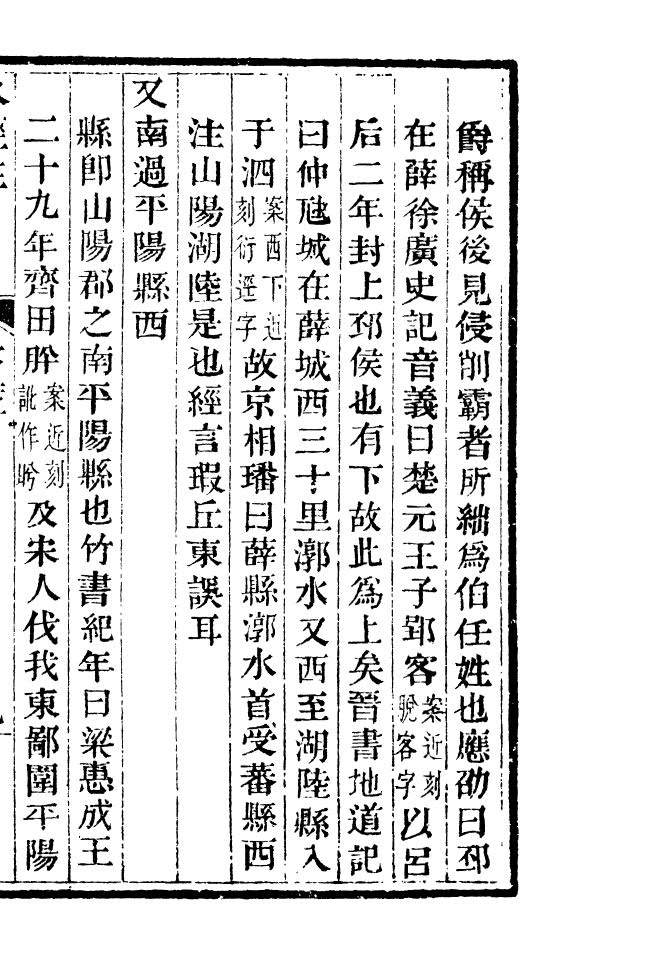 爵稱侯後見侵削霸者所絀爲伯任姓也應劭曰邳
在薛徐廣史記音義曰楚元王子郢客案近刻脫客字以呂
后二年封上邳侯也有下故此爲上矣晉書地道記
曰仲虺城在薛城西三十里漷水又西至湖陸縣入
于泗案西下近刻衍逕字故京相璠曰薛縣漷水首受蕃縣西
注山陽湖陸是也經言瑕丘東誤耳
又南過平陽縣西
縣卽山陽郡之南平陽縣也竹書紀年曰梁惠成王
二十九年齊田肸案近刻訛作盻及宋人伐我東鄙圍平陽